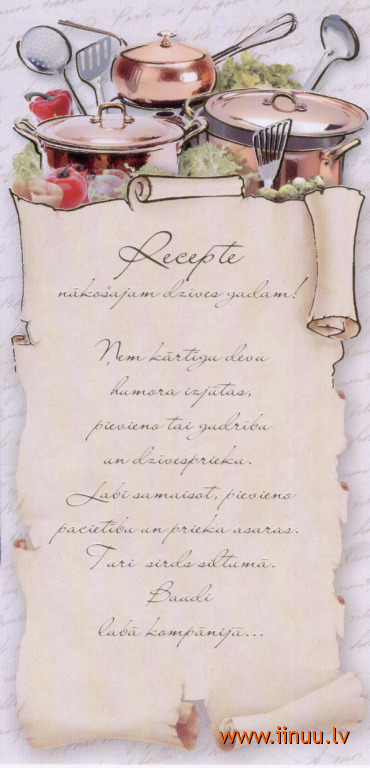 Recepte
nākošajam dzīves gadam!
Ņem kārtīgu devu
humora izjūtas,
pievieno tai gudrību
un dzīvesprieku.
Labi samaisot, pievieno
pacietību un prieka asaras.
Turi sirds siltumā.
Baudi
labā kompānijā...
www.iinuu.lv